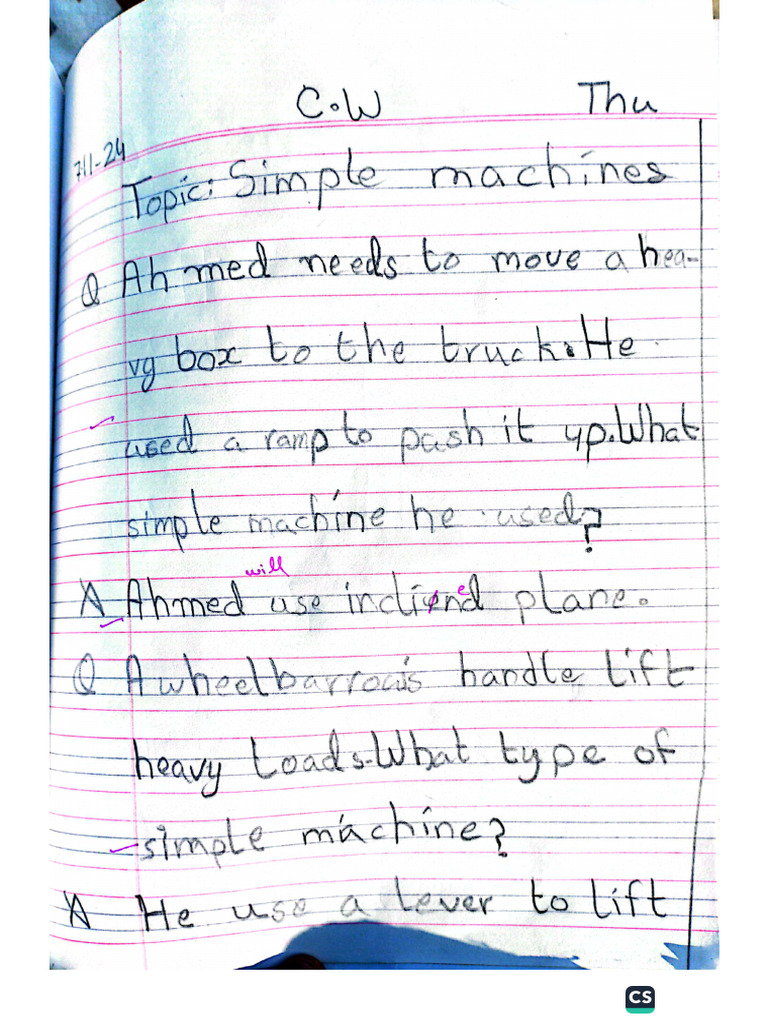 C.W Thu
7-11-24
Topic: Simple machines
Q Ahmed needs to move a hea-
vy box to the truck. He
used a ramp to push it up. What
simple machine he used?
will
A Ahmed use inclined plane.
Q A wheelbarrow's handle lift
heavy loads. What type of
simple machine?
A He use a lever to lift
CS